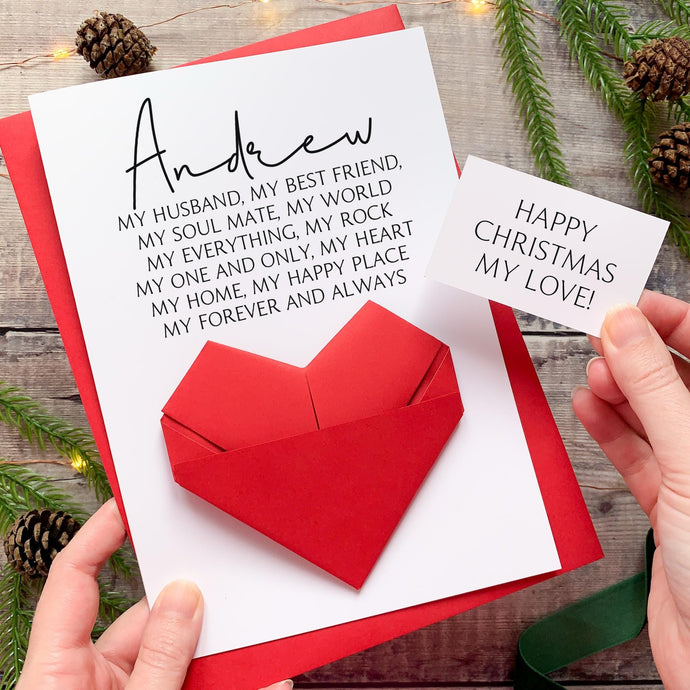 Andrew
MY HUSBAND, MY BEST FRIEND,
MY SOUL MATE, MY WORLD
MY EVERYTHING, MY ROCK
MY ONE AND ONLY, MY HEART
MY HOME, MY HAPPY PLACE
MY FOREVER AND ALWAYS
HAPPY
CHRISTMAS
MY LOVE!